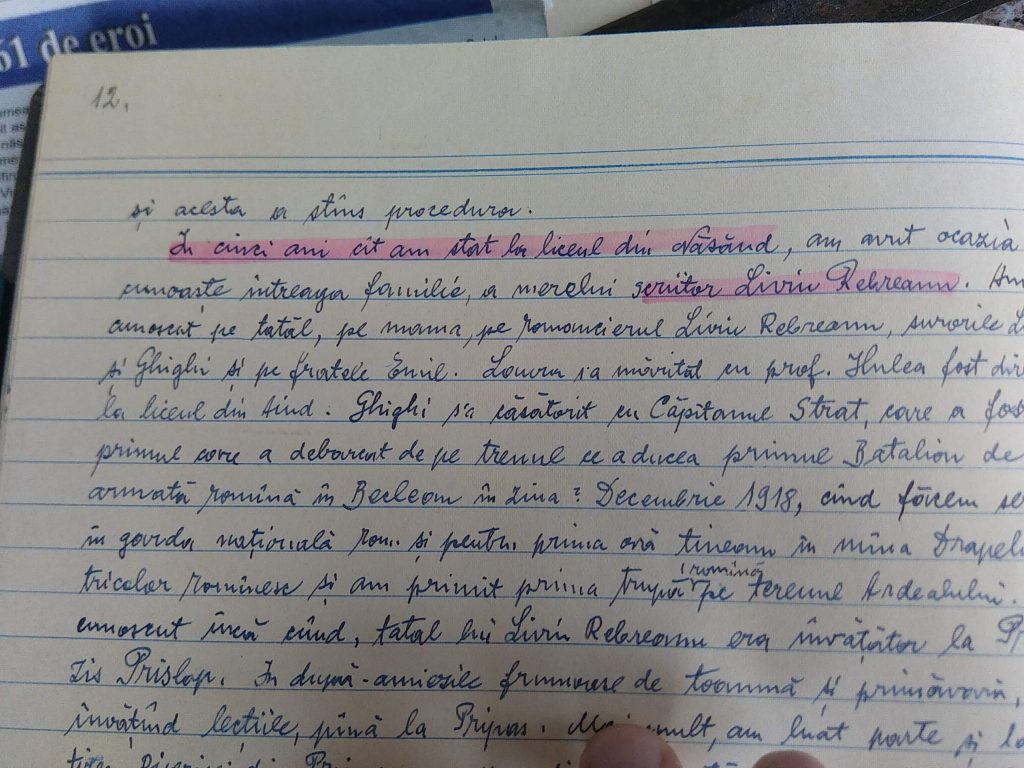 61 de eroi
12.
și acesta a stîns procedura.
In cinci ani cit am stat la liceul din Năsăud, am avut ocazia
cunoaște intreaga familie, a merelui scriitor Liviu Rebreanu. Am
cunoscut pe tatăl, pe mama, pe romancierul Liviu Rebreanu, surorile L
și Ghighi și pe fratele Emil. Laura s-a măritat cu prof. Hulea fost dir
la liceul din Aiud. Ghighi s'a căsătorit cu Căpitanul Strat, care a fos
primul care a debarcat de pe trenul ce aducea primul Batalion de
armată romînă în Beclean în ziua ? Decembrie 1918, cînd făcem se
în garda națională rom. și pentru prima oră tineam în mîna Drapelu
tricolor romînesc și am primit prima trupă romînă pe terenul Ardealului.
cunoscut încă cînd, tatal lui Liviu Rebreanu era învățător la P
zis Prislop. In după-amiezile frumoase de toamnă și primăvară,
învățînd lecțiile, pînă la Pripas. Mai mult, am luat parte și la